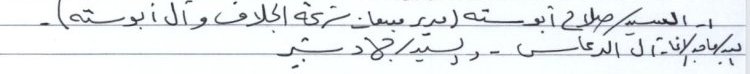 ١ - السيد/ صلاح أبوسته (مدير مبيعات شركة الجلاف وآل أبوسته).
السيد/ ماجد/ آل الدعاس - والسيد/ جهاد شبير